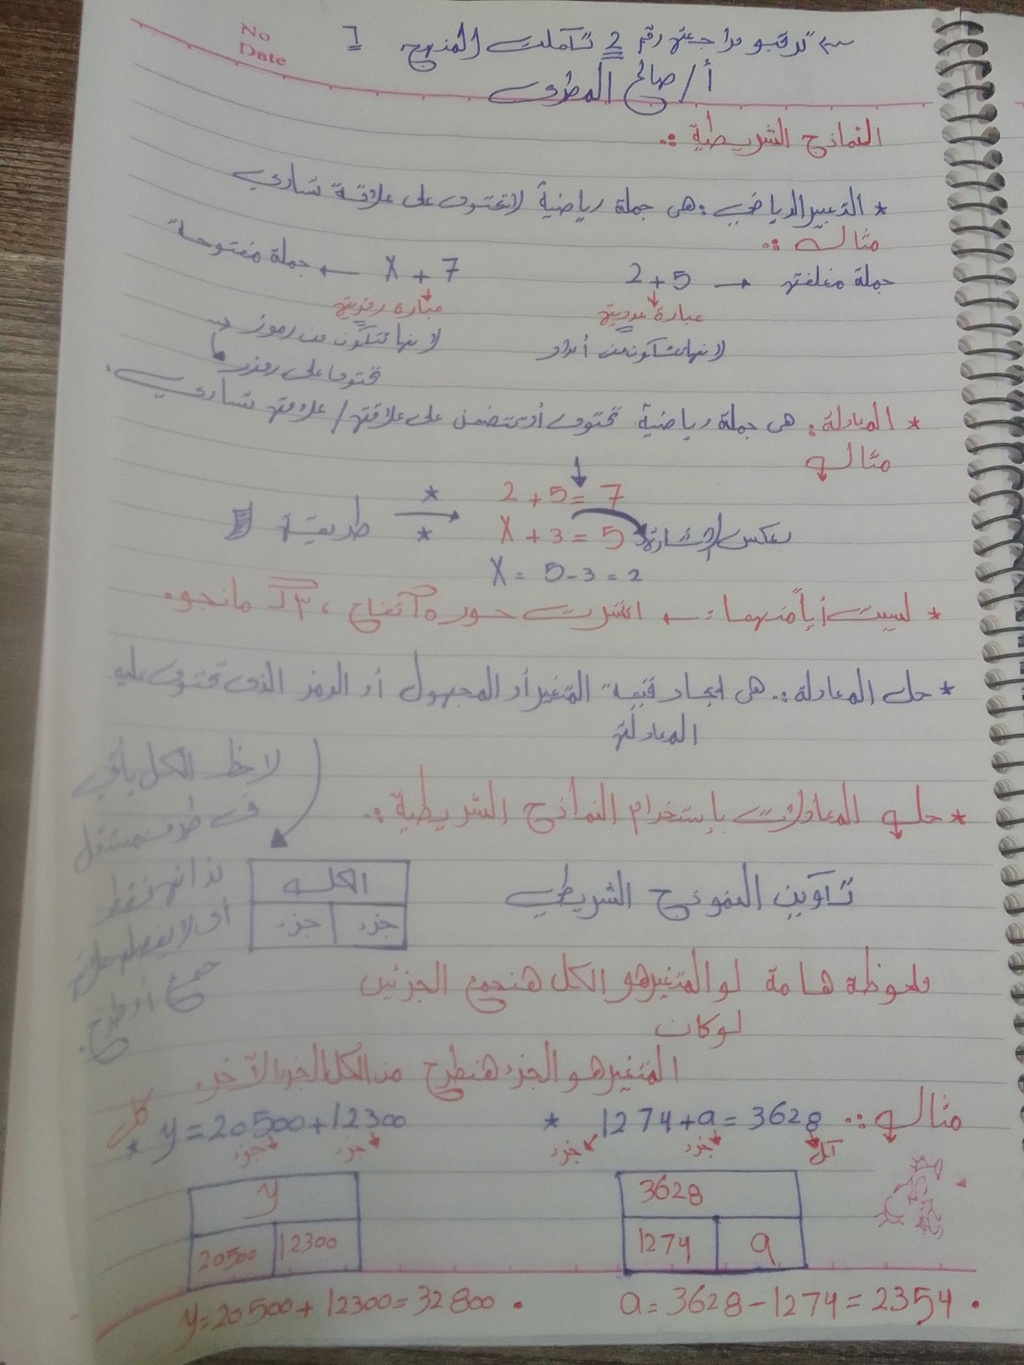 No
Date
رقم 2 تكملت المنهج
أ/ صالح المطرى
النماذج الشريطية :.
* التعبير الرياضي : هى جملة رياضية لاتحتوى على علاقة تساوي
مثال :.
جملة مغلقة → 2+5
X + 7 → جملة مفتوحة
عبارة عددية
عبارة رمزية
لانها تتكون من أعداد
لانها تتكون من رموز
تحتوى على رموز
* المعادلة : هى جملة رياضية تحتوى أو تتضمن على علاقة / علامة تساوي
مثال
2 + 5 = 7
X + 3 = 5 بعكس الاشارة
* * طريقة
X = 5 - 3 = 2
* ليست أياً منهما :. اشترت حور 5 تفاح ، 3 مانجو.
* حل المعادلة :. هى ايجاد قيمة المتغير أو المجهول أو الرمز الذى تحتوى عليه
المعادلة
* حل المعادلات بإستخدام النماذج الشريطية :.
لاحظ الكل يأتى
فى طرف مستقل
بذاته فقط
أى لا يوجد علامة
جمع أو طرح
تكوين النموذج الشريطي
الكل
جزء جزء
ملحوظة هامة لو المتغير هو الكل هنجمع الجزئين
لو كان
المتغير هو الجزء هنطرح من الكل الجزء الآخر
مثال :. 1274 + a = 3628
كل
جزء
جزء
* y = 20500 + 12300
كل
جزء
جزء
3628
1274 a
y
20500 12300
a = 3628 - 1274 = 2354 .
y = 20500 + 12300 = 32800 .